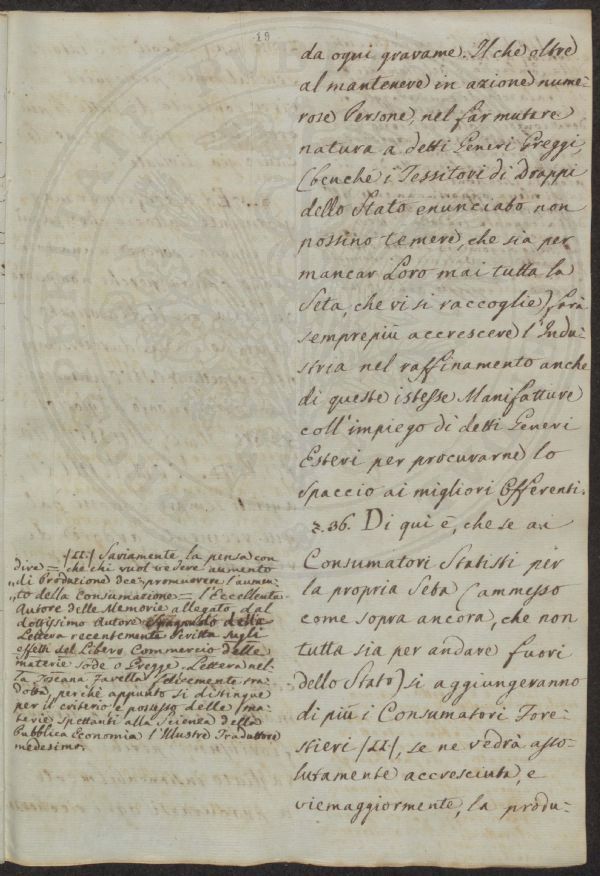 19
da ogni gravame. Il che oltre
al mantenere in azione nume-
rose Persone, nel far mutare
natura a detti Generi Greggi,
(benchè i Tessitori di Drappi
dello Stato enunciato non
possino temere, che sia per
mancar Loro mai tutta la
Seta, che vi si raccoglie) farà
semprepiù accrescere l'Indu-
stria nel raffinamento anche
di queste istesse Manifatture
coll'impiego di detti Generi
Esteri per procurarne lo
Spaccio ai migliori Offerenti.
§. 36. Di qui è, che se ai
Consumatori Statisti per
la propria Seta (ammesso
come sopra ancora, che non
tutta sia per andare fuori
dello Stato) si aggiungeranno
di più i Consumatori Fore-
stieri /LL/, se ne vedrà asso-
lutamente accresciuta, e
viemaggiormente, la produ-
/LL/ Saviamente la pensa con
dire = che chi vuol vedere aumento
„di Produzione dee promuovere l'aumen-
„to della Consumazione = l'Eccellente
Autore delle Memorie allegato dal
dottissimo Autore della
Lettera recentemente scritta sugli
effetti del Libero Commercio delle
materie Sode o Gregge. Lettera nel-
la Toscana favella felicemente tra-
dotta, perchè appunto si distingue
per il criterio e possesso delle ma-
terie spettanti alla Scienza della
Pubblica Economia l'Illustre Traduttore
medesimo.